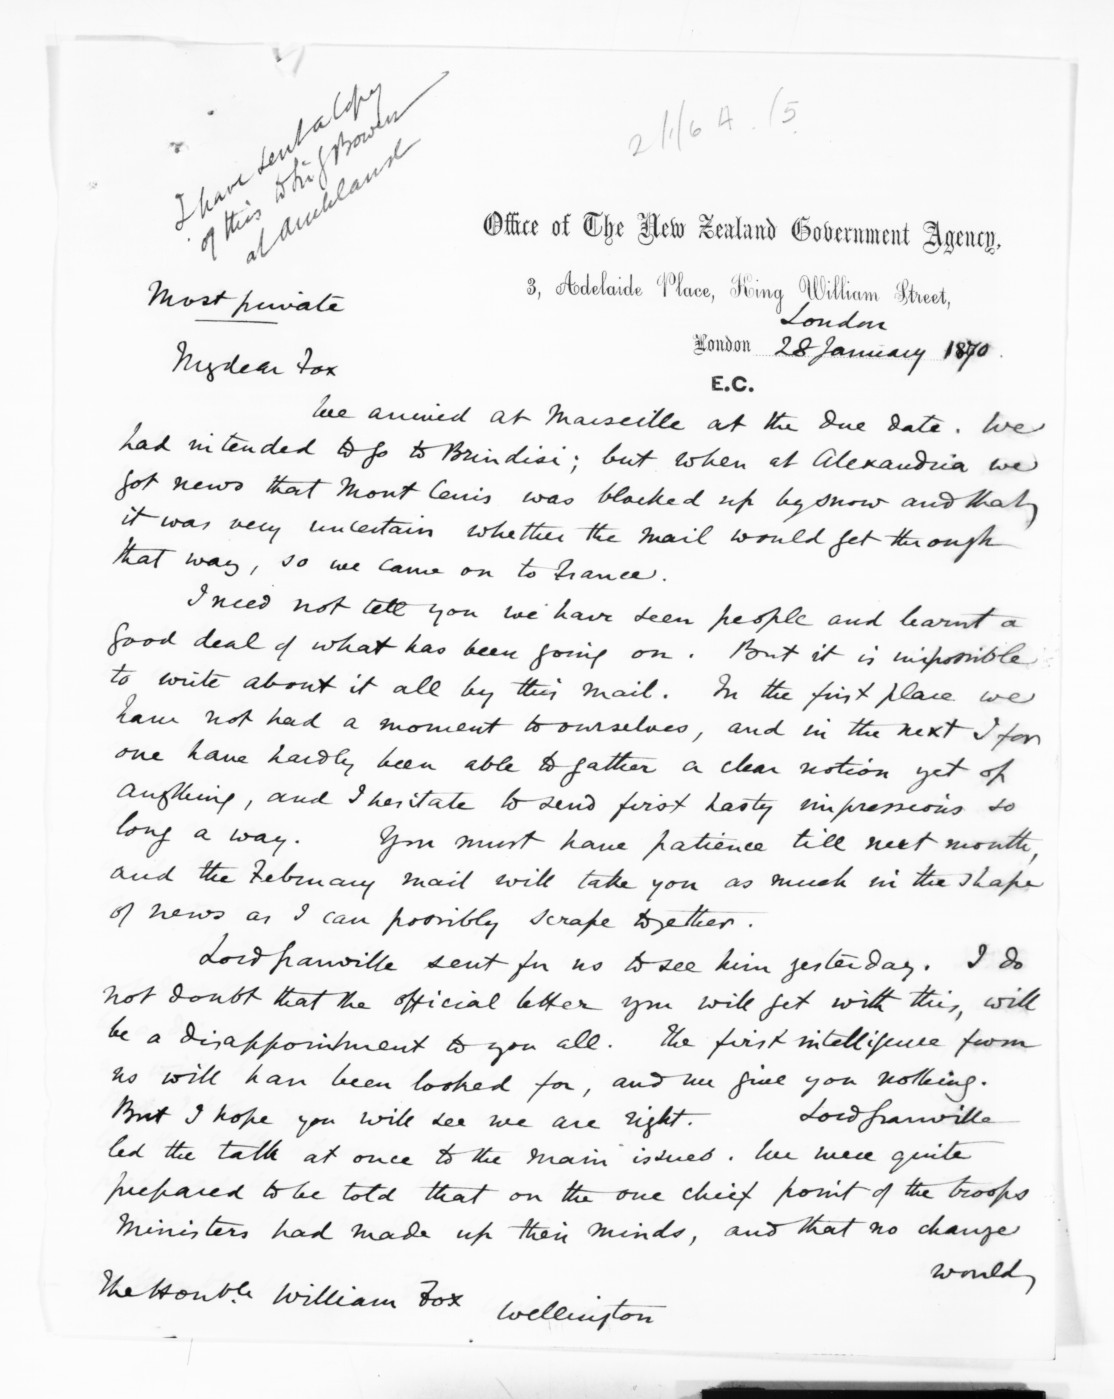 I have sent a Copy
of this to Sir G Bowen
at Auckland
2/1/64. 15
Office of The New Zealand Government Agency,
3, Adelaide Place, King William Street,
London
London 28 January 1870.
E.C.
Most private
My dear Fox
We arrived at Marseille at the due date. We
had intended to go to Brindisi; but when at Alexandria we
got news that Mont Cenis was blocked up by snow and that
it was very uncertain whether the mail would get through
that way, so we came on to France.
I need not tell you we have seen people and learnt a
good deal of what has been going on. But it is impossible
to write about it all by this mail. In the first place we
have not had a moment to ourselves, and in the next I for
one have hardly been able to gather a clear notion yet of
anything, and I hesitate to send first hasty impressions so
long a way. You must have patience till next month,
and the February mail will take you as much in the shape
of news as I can possibly scrape together.
Lord Granville sent for us to see him yesterday. I do
not doubt that the official letter you will get with this, will
be a disappointment to you all. The first intelligence from
us will have been looked for, and we give you nothing.
But I hope you will see we are right. Lord Granville
led the talk at once to the main issues. We were quite
prepared to be told that on the one chief point of the troops
Ministers had made up their minds, and that no change
would
The Honble. William Fox
Wellington